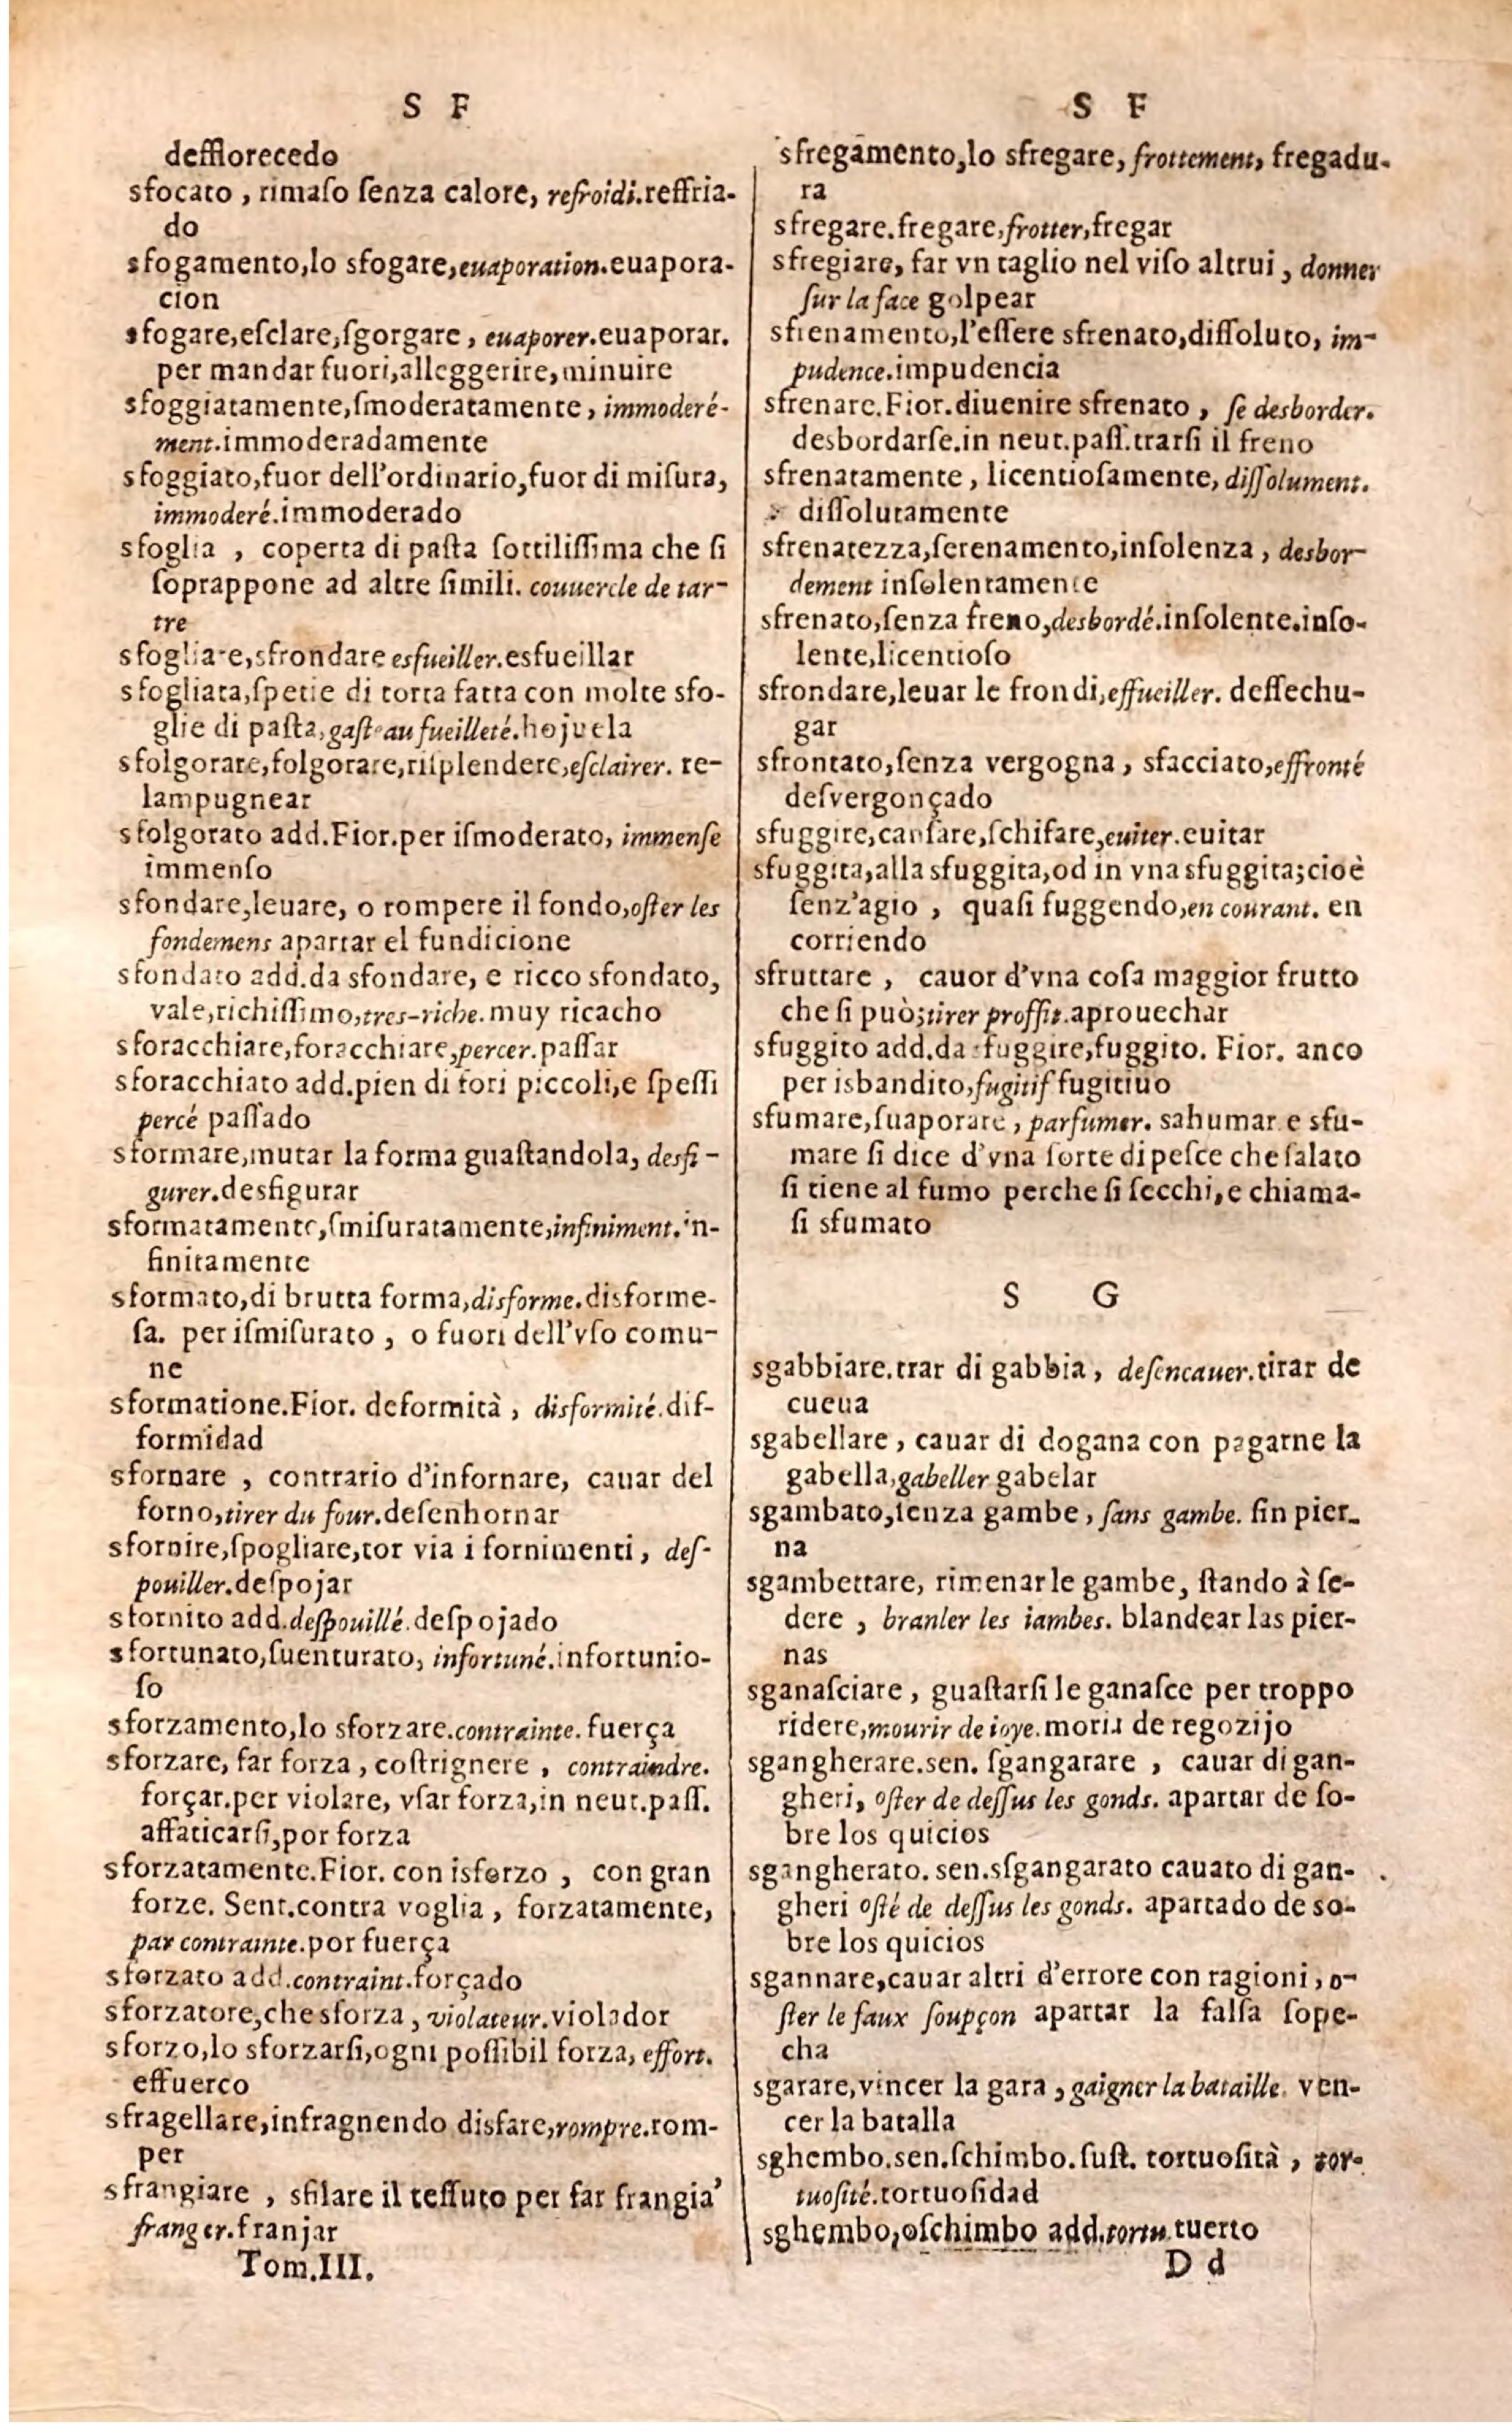 S F
deſflorecedo
sfocato , rimaſo ſenza calore, refroidi.reffria-
do
sfogamento,lo sfogare,euaporation.euapora-
cion
sfogare,eſclare,ſgorgare , euaporer.euaporar.
per mandar fuori,alleggerire,minuire
sfoggiatamente,ſmoderatamente , immoderé-
ment.immoderadamente
sfoggiato,fuor dell'ordinario,fuor di miſura,
immoderé.immoderado
sfoglia , coperta di paſta ſottiliſſima che ſi
ſoprappone ad altre ſimili. couuercle de tar-
tre
sfogliare,sfrondare esfueiller.esfueillar
sfogliata,ſpetie di torta fatta con molte sfo-
glie di paſta,gaſteau fueilleté.hojuela
sfolgorare,folgorare,riſplendere,eſclairer. re-
lampugnear
sfolgorato add.Fior.per iſmoderato, immenſe
immenſo
sfondare,leuare, o rompere il fondo,oſter les
fondemens apartar el fundicione
sfondato add.da sfondare, e ricco sfondato,
vale,richiſſimo,tres-riche.muy ricacho
sforacchiare,foracchiare,percer.paſſar
sforacchiato add.pien di fori piccoli,e ſpeſſi
percé paſſado
sformare,mutar la forma guaſtandola, desfi-
gurer.desfigurar
sformatamente,ſmiſuratamente,infiniment.in-
finitamente
sformato,di brutta forma,disforme.disforme-
ſa. per iſmiſurato , o fuori dell'vſo comu-
ne
sformatione.Fior. deformità , disformité.diſ-
formidad
sfornare , contrario d'infornare, cauar del
forno,tirer du four.deſenhornar
sfornire,ſpogliare,tor via i fornimenti , deſ-
pouiller.deſpojar
sfornito add.deſpouillé.deſpojado
sfortunato,ſuenturato, infortuné.infortunio-
ſo
sforzamento,lo sforzare.contrainte. fuerça
sforzare, far forza , coſtrignere , contraindre.
forçar.per violare, vſar forza,in neut.paſſ.
affaticarſi,por forza
sforzatamente.Fior. con isforzo , con gran
forze. Sent.contra voglia , forzatamente,
par contrainte.por fuerça
sforzato add.contraint.forçado
sforzatore,che sforza , violateur.violador
sforzo,lo sforzarſi,ogni poſſibil forza, effort.
effuerco
sfragellare,infragnendo disfare,rompre.rom-
per
sfrangiare , sfilare il teſſuto per far frangia'
franger.franjar
Tom.III.
S F
sfregamento,lo sfregare, frottement, fregadu-
ra
sfregare.fregare,frotter,fregar
sfregiare, far vn taglio nel viſo altrui , donner
ſur la face golpear
sfrenamento,l'eſſere sfrenato,diſſoluto, im-
pudence.impudencia
sfrenare.Fior.diuenire sfrenato , ſe desborder.
desbordarſe.in neut.paſſ.trarſi il freno
sfrenatamente , licentioſamente, diſſolument.
diſſolutamente
sfrenatezza,ſerenamento,inſolenza , desbor-
dement inſolentamente
sfrenato,ſenza freno,desbordé.inſolente.inſo-
lente,licentioſo
sfrondare,leuar le frondi,effueiller. deſſechu-
gar
sfrontato,ſenza vergogna , sfacciato,effronté
deſvergonçado
sfuggire,canſare,ſchifare,euiter.euitar
sfuggita,alla sfuggita,od in vna sfuggita;cioè
ſenz'agio , quaſi fuggendo,en courant. en
corriendo
sfruttare , cauor d'vna coſa maggior frutto
che ſi può;tirer proffit.aprouechar
sfuggito add.da sfuggire,fuggito. Fior. anco
per isbandito,fugitif fugitiuo
sfumare,ſuaporare , parfumer. sahumar e sfu-
mare ſi dice d'vna ſorte di peſce che ſalato
ſi tiene al fumo perche ſi ſecchi,e chiama-
ſi sfumato
S G
sgabbiare.trar di gabbia , deſencauer.tirar de
cueua
sgabellare , cauar di dogana con pagarne la
gabella,gabeller gabelar
sgambato,ſenza gambe , ſans gambe. ſin pier-
na
sgambettare, rimenar le gambe, ſtando à ſe-
dere , branler les iambes. blandear las pier-
nas
sganaſciare , guaſtarſi le ganaſce per troppo
ridere,mourir de ioye.morir de regozijo
sgangherare.sen. ſgangarare , cauar di gan-
gheri, oſter de deſſus les gonds. apartar de ſo-
bre los quicios
sgangherato. sen.sſgangarato cauato di gan-
gheri oſté de deſſus les gonds. apartado de so-
bre los quicios
sgannare,cauar altri d'errore con ragioni , o-
ſter le faux ſoupçon apartar la falſa ſope-
cha
sgarare,vincer la gara , gaigner la bataille. ven-
cer la batalla
sghembo.sen.ſchimbo.ſuſt. tortuoſità , tor-
tuoſité.tortuoſidad
sghembo,oſchimbo add.tortu.tuerto
D d